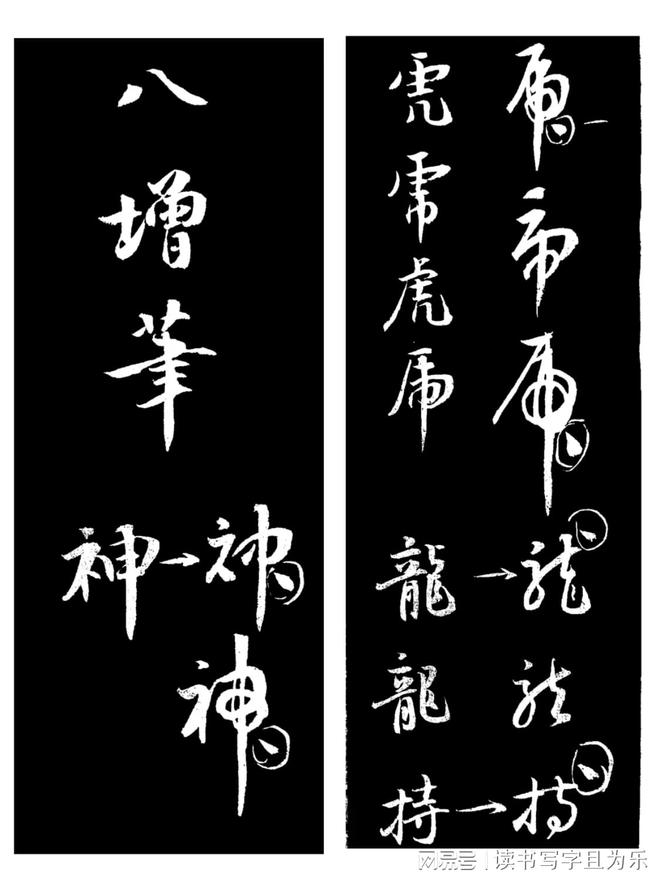 八增筆
神→神
神
虎 虎
虎 虎
虎 虎
虎
龍→龍
龍 龍
持→持
网易号 | 读书写字且为乐